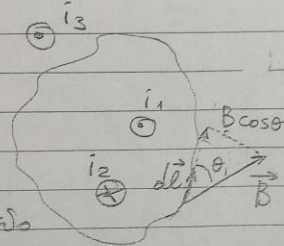 i₃
i₁
B cosθ
i₂
dl⃗
θ
B⃗